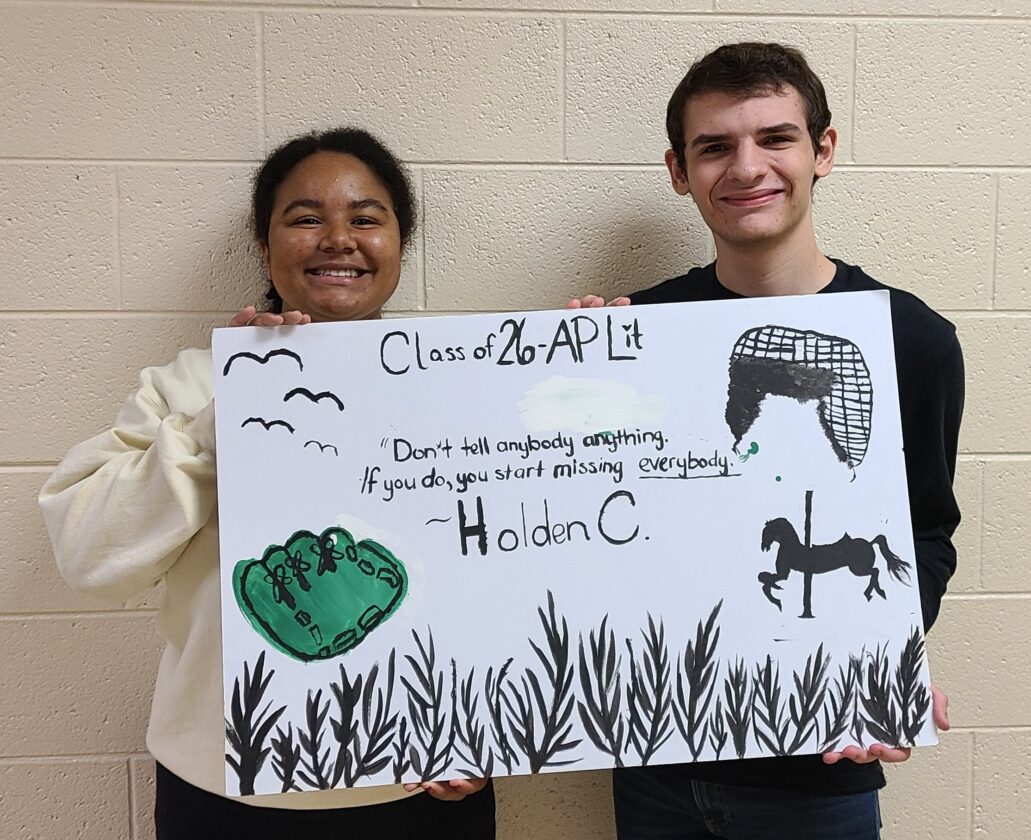 Class of 26-AP Lit
"Don't tell anybody anything.
If you do, you start missing everybody.
~Holden C.